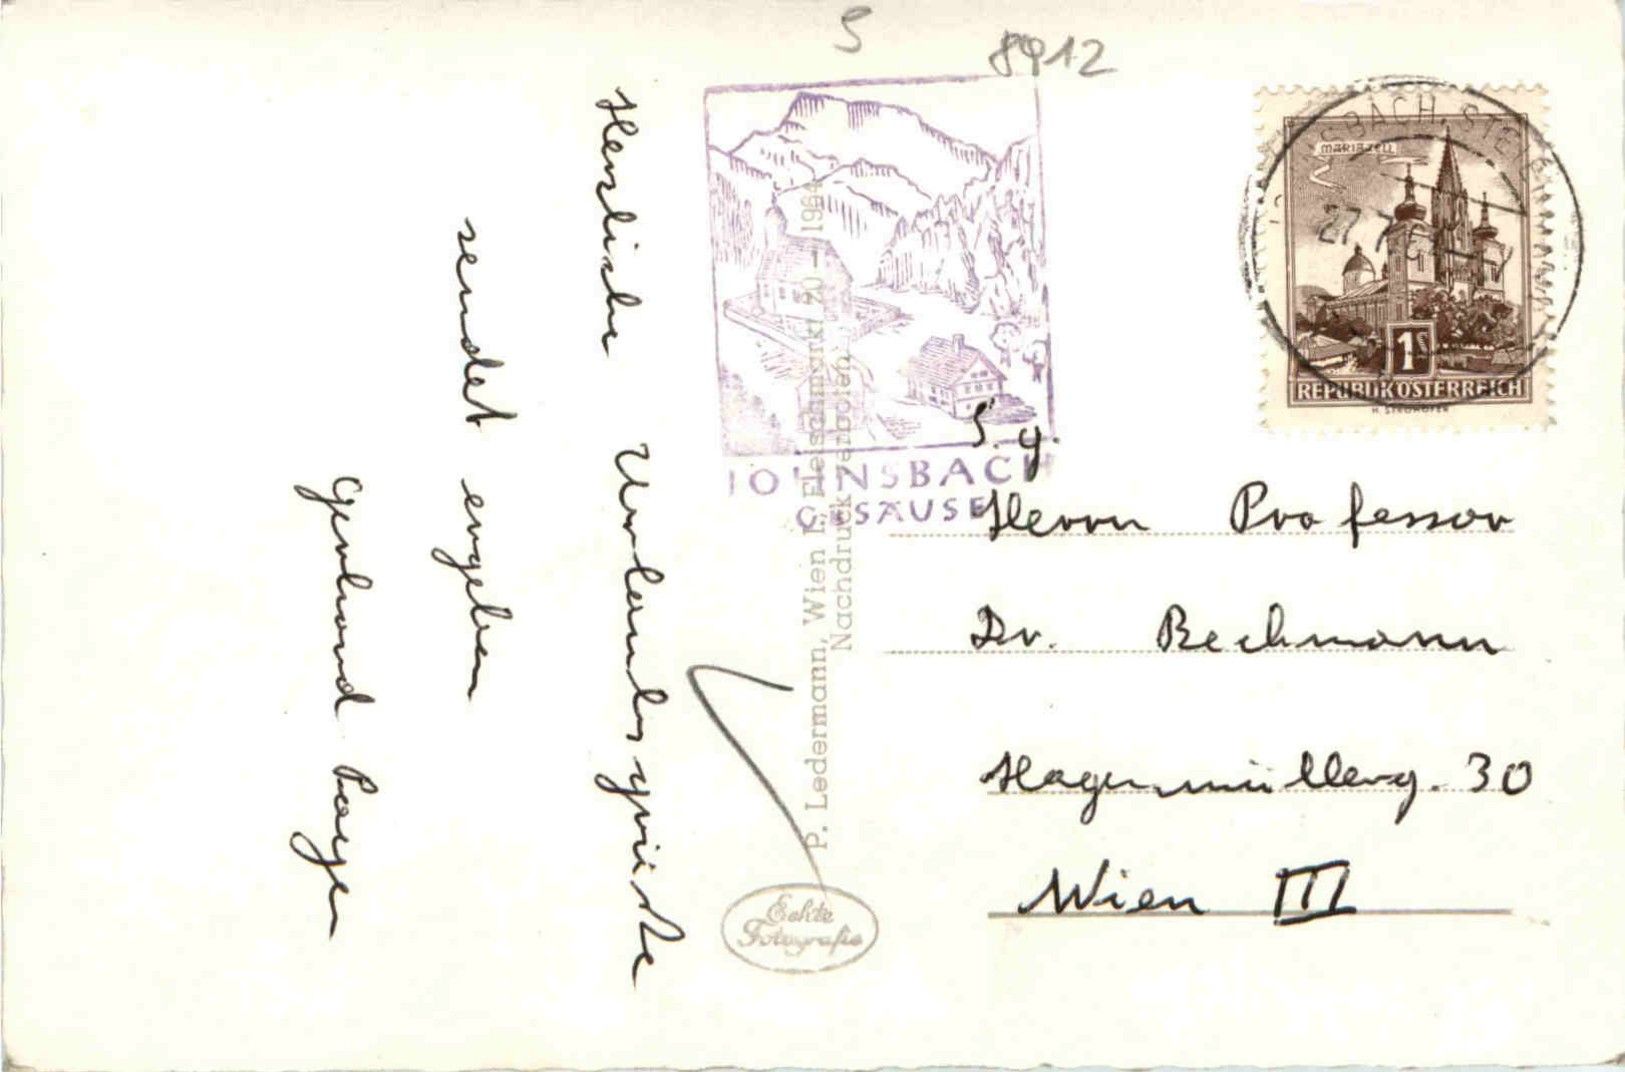 S
8912
Herzliche Urlaubsgrüße
sendet ergeben
Gerhard Payer
JOHNSBACH
GESÄUSE
P. Ledermann, Wien I., Fleischmarkt 20 — 1964
Nachdruck verboten
Echte
Fotografie
MARIAZELL
1S
REPUBLIK ÖSTERREICH
27. 7.
S. g.
Herrn Professor
Dr. Bechmann
Hagenmüllerg. 30
Wien III